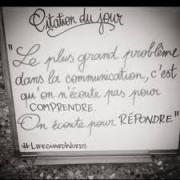 Citation du jour
"Le plus grand problème
dans la communication, c'est
qu'on n'écoute pas pour
COMPRENDRE.
On écoute pour RÉPONDRE"
#LifeguardWords